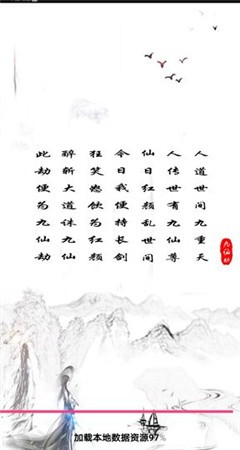 人道世间九重天
人传世有九仙尊
仙日红颜乱世间
今日我便持长剑
狂笑饮为红颜
醉斩大道诛九仙
此劫便为九仙劫
九仙劫
加载本地数据资源97%